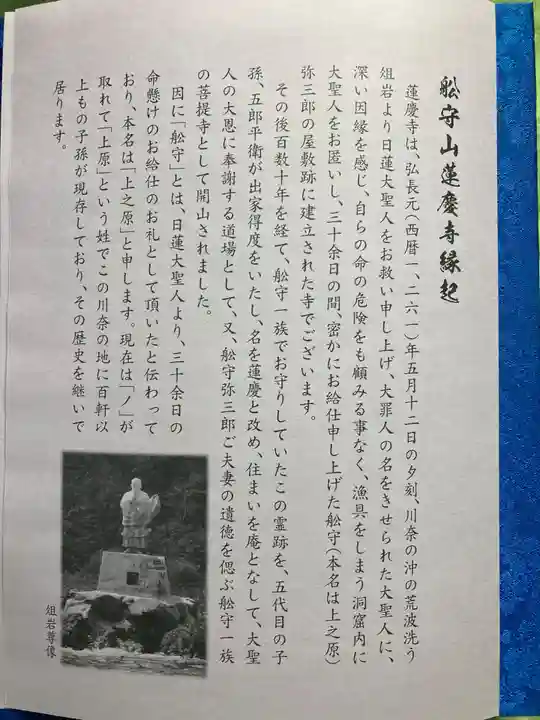 舩守山蓮慶寺縁起
蓮慶寺は、弘長元(西暦一、二六一)年五月十二日の夕刻、川奈の沖の荒波洗う
俎岩より日蓮大聖人をお救い申し上げ、大罪人の名をきせられた大聖人に、
深い因縁を感じ、自らの命の危険をも顧みる事なく、漁具をしまう洞窟内に
大聖人をお匿いし、三十余日の間、密かにお給仕申し上げた舩守(本名は上之原)
弥三郎の屋敷跡に建立された寺でございます。
その後百数十年を経て、舩守一族でお守りしていたこの霊跡を、五代目の子
孫、五郎平衛が出家得度をいたし、名を蓮慶と改め、住まいを庵となして、大聖
人の大恩に奉謝する道場として、又、舩守弥三郎ご夫妻の遺徳を偲ぶ舩守一族
の菩提寺として開山されました。
因に「舩守」とは、日蓮大聖人より、三十余日の
命懸けのお給仕のお礼として頂いたと伝わって
おり、本名は「上之原」と申します。現在は「ノ」が
取れて「上原」という姓でこの川奈の地に百軒以
上もの子孫が現存しており、その歴史を継いで
居ります。
俎岩尊像